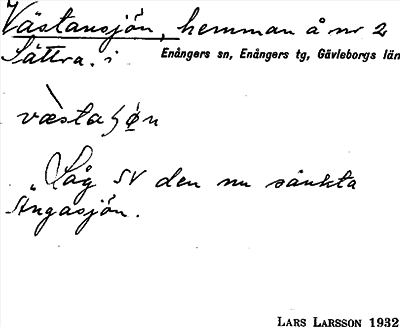 Västansjön, hemman å nr 2
Sättra. i Enångers sn, Enångers tg, Gävleborgs län
væstaʃøn
„Låg SV den nu sänkta
Ängasjön.
LARS LARSSON 1932